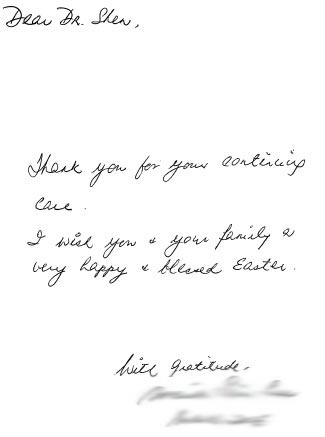 Dear Dr. Shen,
Thank you for your continuing
care.
I wish you & your family a
very happy & blessed Easter.
With gratitude.